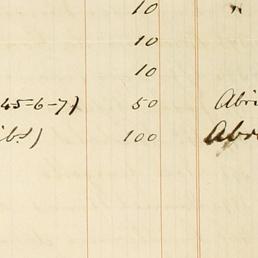 10 "
10
10
45-6-7) 50 Abri
ibs) 100 Abr